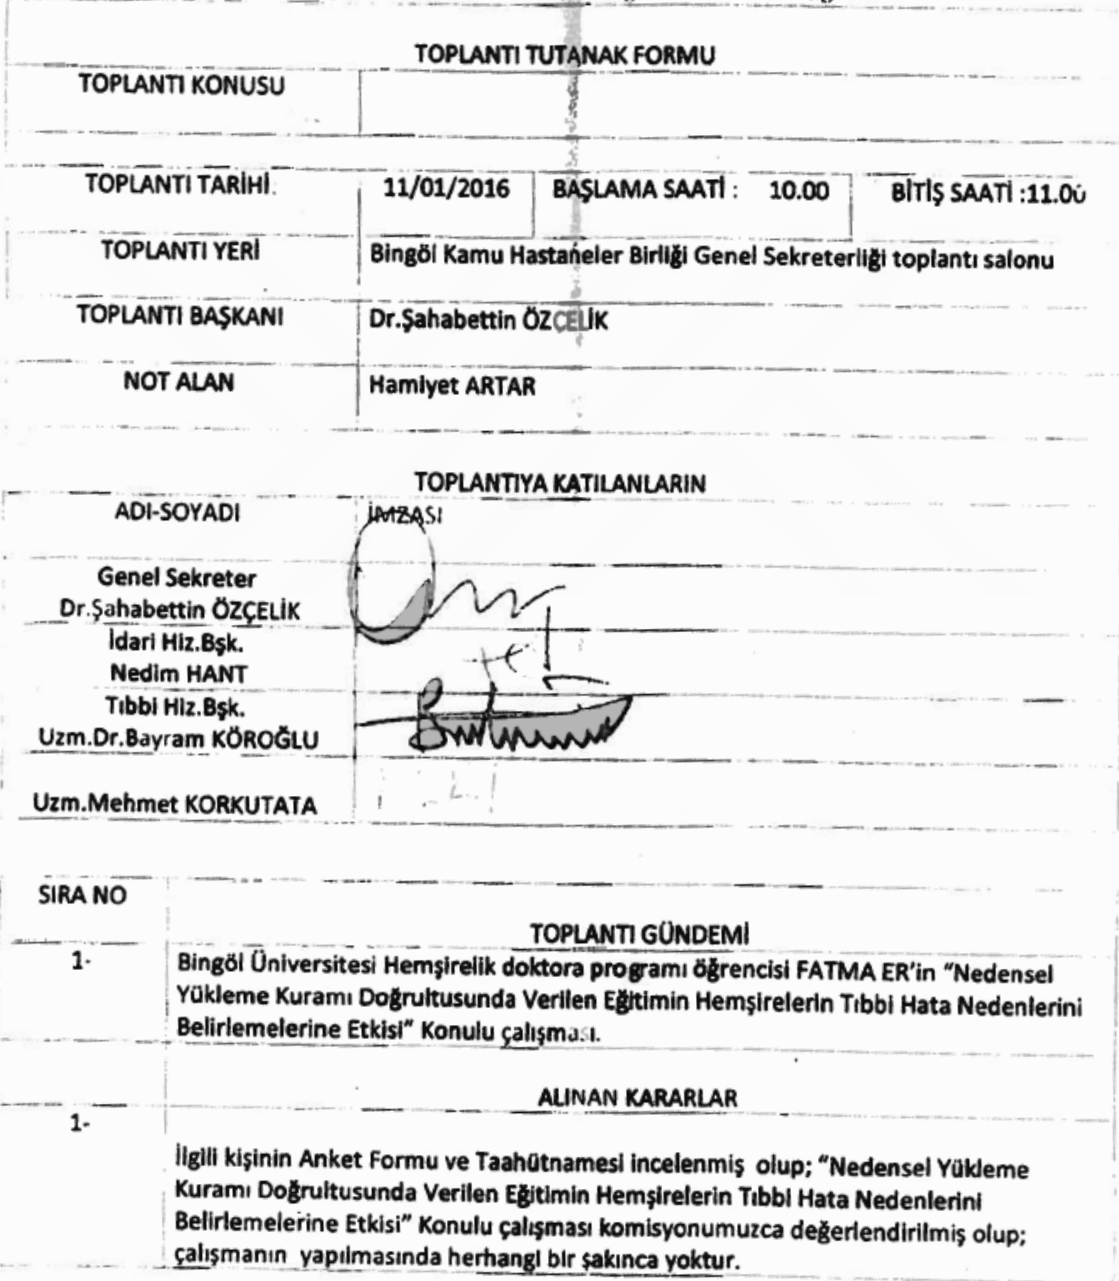 TOPLANTI TUTANAK FORMU
TOPLANTI KONUSU
TOPLANTI TARİHİ 11/01/2016 BAŞLAMA SAATİ : 10.00 BİTİŞ SAATİ :11.00
TOPLANTI YERİ Bingöl Kamu Hastaneler Birliği Genel Sekreterliği toplantı salonu
TOPLANTI BAŞKANI Dr.Şahabettin ÖZÇELİK
NOT ALAN Hamiyet ARTAR
TOPLANTIYA KATILANLARIN
ADI-SOYADI İMZASI
Genel Sekreter
Dr.Şahabettin ÖZÇELİK
İdari Hiz.Bşk.
Nedim HANT
Tıbbi Hiz.Bşk.
Uzm.Dr.Bayram KÖROĞLU
Uzm.Mehmet KORKUTATA
SIRA NO
TOPLANTI GÜNDEMİ
1- Bingöl Üniversitesi Hemşirelik doktora programı öğrencisi FATMA ER'in "Nedensel
Yükleme Kuramı Doğrultusunda Verilen Eğitimin Hemşirelerin Tıbbi Hata Nedenlerini
Belirlemelerine Etkisi" Konulu çalışması.
ALINAN KARARLAR
1-
İlgili kişinin Anket Formu ve Taahütnamesi incelenmiş olup; "Nedensel Yükleme
Kuramı Doğrultusunda Verilen Eğitimin Hemşirelerin Tıbbi Hata Nedenlerini
Belirlemelerine Etkisi" Konulu çalışması komisyonumuzca değerlendirilmiş olup;
çalışmanın yapılmasında herhangi bir şakınca yoktur.